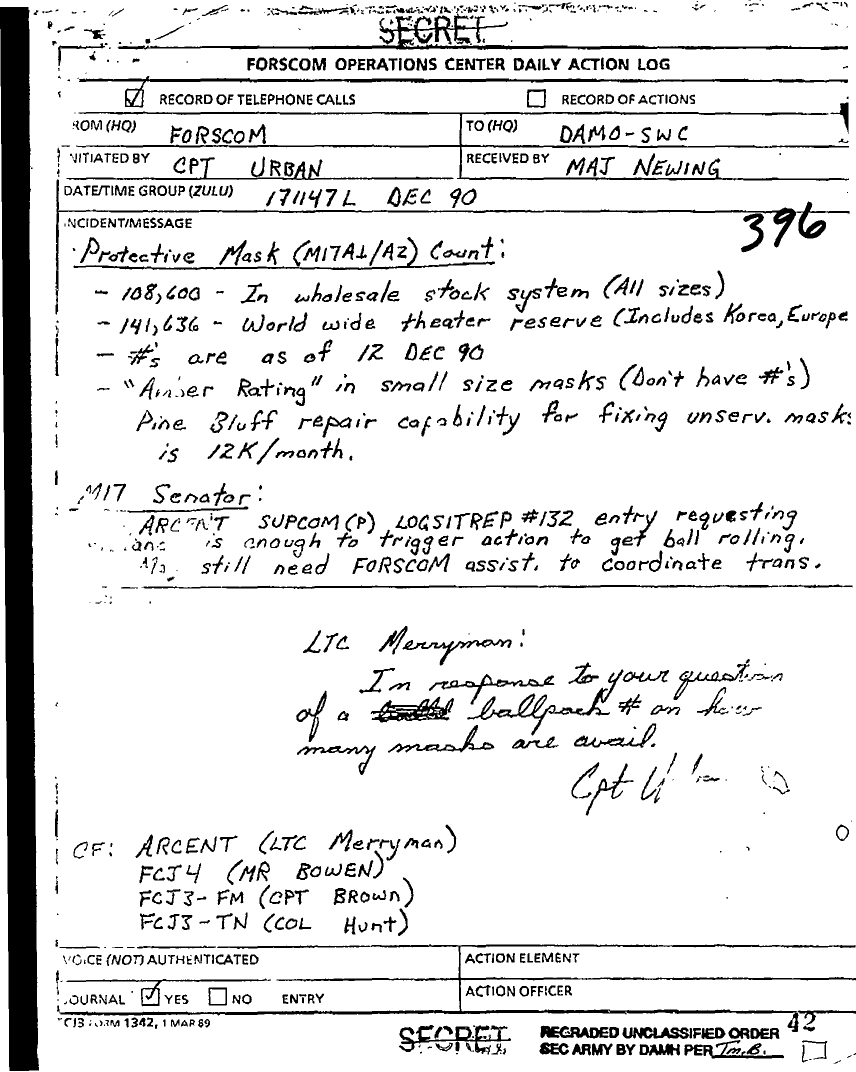 SECRET
FORSCOM OPERATIONS CENTER DAILY ACTION LOG
RECORD OF TELEPHONE CALLS
RECORD OF ACTIONS
ROM (HQ) FORSCOM
TO (HQ) DAMO-SWC
NITIATED BY CPT URBAN
RECEIVED BY MAJ NEWING
DATE/TIME GROUP (ZULU) 171147L DEC 90
NCIDENT/MESSAGE
396
Protective Mask (M17A1/A2) Count:
- 108,600 - In wholesale stock system (All sizes)
- 141,636 - World wide theater reserve (Includes Korea, Europe
- #'s are as of 12 DEC 90
- "Amber Rating" in small size masks (Don't have #'s)
Pine Bluff repair capability for fixing unserv. masks
is 12K/month.
M17 Senator:
ARCENT SUPCOM(P) LOGSITREP #132 entry requesting
is enough to trigger action to get ball rolling.
still need FORSCOM assist. to coordinate trans.
LTC Merryman:
In response to your question
of a ballpark # on how
many masks are avail.
Cpt
CF: ARCENT (LTC Merryman)
FCJ4 (MR BOWEN)
FCJ3-FM (CPT BROWN)
FCJ3-TN (COL Hunt)
VOICE (NOT) AUTHENTICATED
ACTION ELEMENT
JOURNAL YES NO ENTRY
ACTION OFFICER
FORM 1342, 1 MAR 89
SECRET
REGRADED UNCLASSIFIED ORDER 42
SEC ARMY BY DAMH PER T.M.B.